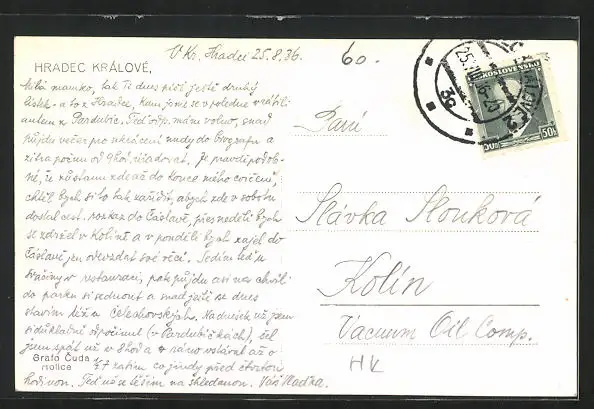 V Kr. Hradci 25.8.36.
60.-
HRADEC KRÁLOVÉ,
Milá mamko, tak Ti dnes píši ještě druhý
lístek - a to z Hradce, kam jsme se v poledne vrátili
autem z Pardubic. Teď odp. mám volno, snad
půjdu večer pro ukrácení nudy do biografu a
zítra počnu od 9 hod. úřadovat. Je pravděpodob-
né, že zůstanu zde až do konce mého cvičení,
chtěl bych si to tak zaříditi, abych zde v sobotu
dostal cest. rozkaz do Čáslavě, přes neděli bych
se zdržel v Kolíně a v pondělí bych zajel do
Čáslavě jen odevzdat své věci. Sedím teď u
svačiny v restauraci, pak půjdu asi na chvíli
do parku si sednout a snad ještě se dnes
stavím též u Čelechovských. Nadnešek už jsem
si důkladně odpočinul (v Pardubičkách), šel
jsem spát už v 8 hod a ráno vstával až o
½7 zatím co jindy před čtvrtou
hodinou. Teď už se těším na shledanou. Váš Vlaďka.
Grafo Čuda
Holice
Paní
Slávka Slouková
Kolín
Vacuum Oil Comp.
HK
KOSLOVENSKO
50h
25.VIII.36
3g